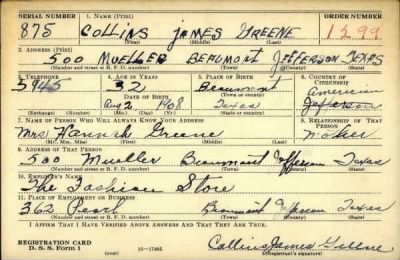 SERIAL NUMBER 1. NAME (Print) ORDER NUMBER
875 COLLINS JAMES GREENE 1299
(First) (Middle) (Last)
2. ADDRESS (Print)
500 MUELLER BEAUMONT JEFFERSON TEXAS
(Number and street or R. F. D. number) (Town) (County) (State)
3. TELEPHONE 4. AGE IN YEARS 5. PLACE OF BIRTH 6. COUNTRY OF CITIZENSHIP
5945 32 Beaumont American
DATE OF BIRTH (Town or county) Jefferson
Aug 2 1908 Texas
(Exchange) (Number) (Mo.) (Day) (Yr.) (State or country)
7. NAME OF PERSON WHO WILL ALWAYS KNOW YOUR ADDRESS 8. RELATIONSHIP OF THAT PERSON
Mrs Hannah Greene
(Mr., Mrs., Miss) (First) (Middle) (Last)
9. ADDRESS OF THAT PERSON
500 Mueller Beaumont Jefferson Texas
(Number and street or R. F. D. number) (Town) (County) (State)
10. EMPLOYER'S NAME
The Fashion Store
11. PLACE OF EMPLOYMENT OR BUSINESS
362 Pearl Beaumont Jefferson Texas
(Number and street or R. F. D. number) (Town) (County) (State)
I AFFIRM THAT I HAVE VERIFIED ABOVE ANSWERS AND THAT THEY ARE TRUE.
REGISTRATION CARD
D. S. S. Form 1 (over) Collins James Greene
(Registrant's signature)